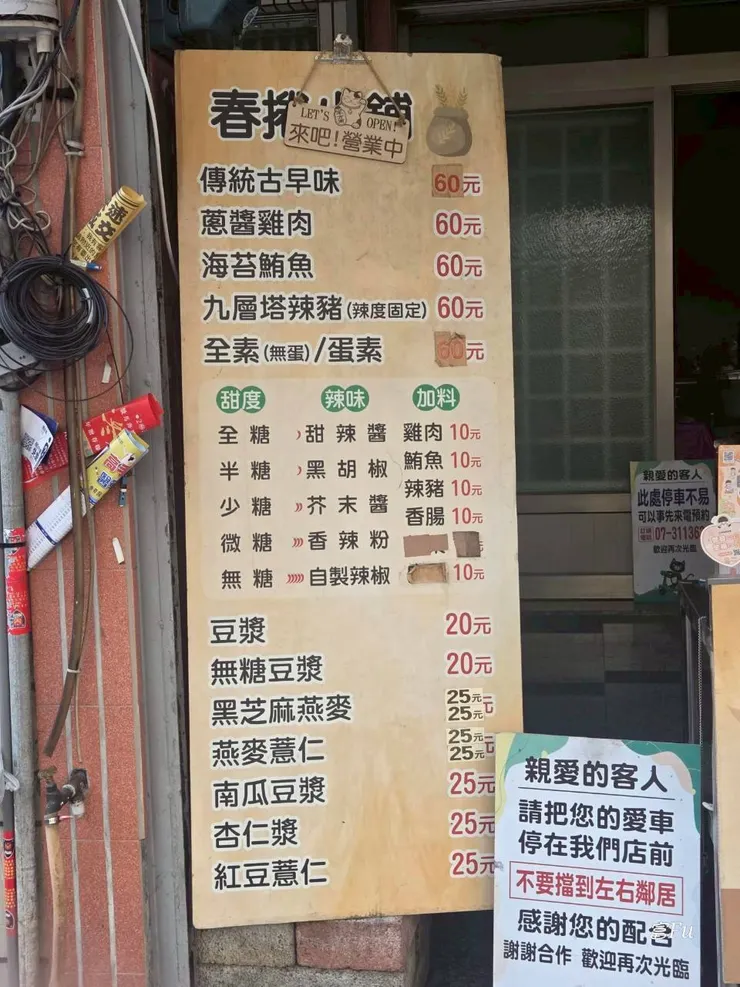 春捲
LET'S OPEN!
來吧!營業中
傳統古早味 60元
蔥醬雞肉 60元
海苔鮪魚 60元
九層塔辣豬(辣度固定) 60元
全素(無蛋)/蛋素 60元
甜度 辣味 加料
全糖 甜辣醬 雞肉 10元
半糖 黑胡椒 鮪魚 10元
少糖 芥末醬 辣豬 10元
微糖 香辣粉 香腸 10元
無糖 自製辣椒 10元
豆漿 20元
無糖豆漿 20元
黑芝麻燕麥 25元 25元
燕麥薏仁 25元 25元
南瓜豆漿 25元
杏仁漿 25元
紅豆薏仁 25元
親愛的客人
此處停車不易
可以事先來電預約
07-3113
歡迎再次光臨
親愛的客人
請把您的愛車
停在我們店前
不要擋到左右鄰居
感謝您的配合
謝謝合作 歡迎再次光臨